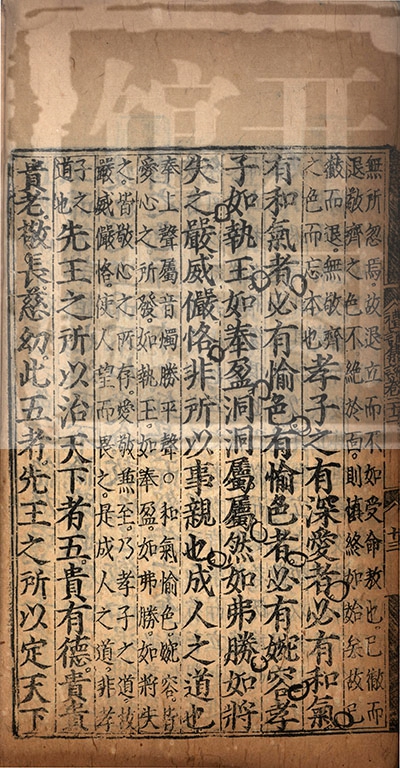 無所忽焉。故退立而不如受命教也已徹而
退敬齊之色不絕於面。則慎終如始矣故已
徹而退。無敬齊
之色而忘本也
孝子之有深愛者必有和氣
有和氣者必有愉色有愉色者必有婉容孝
子如執王如奉盈洞洞屬屬然如弗勝如將
失之嚴威儼恪非所以事親也成人之道也
奉上聲屬音燭勝平聲○和氣愉色。婉容皆
愛心之所發。如執玉。如奉盈。如弗勝。如將失
之。皆敬心之所存。愛敬兼至。乃孝子之道。故
嚴威儼恪。使人望而畏之。是成人之道。非孝
子之
道也
先王之所以治天下者五。貴有德。貴貴
貴老。敬長。慈幼。此五者。先王之所以定天下
十三